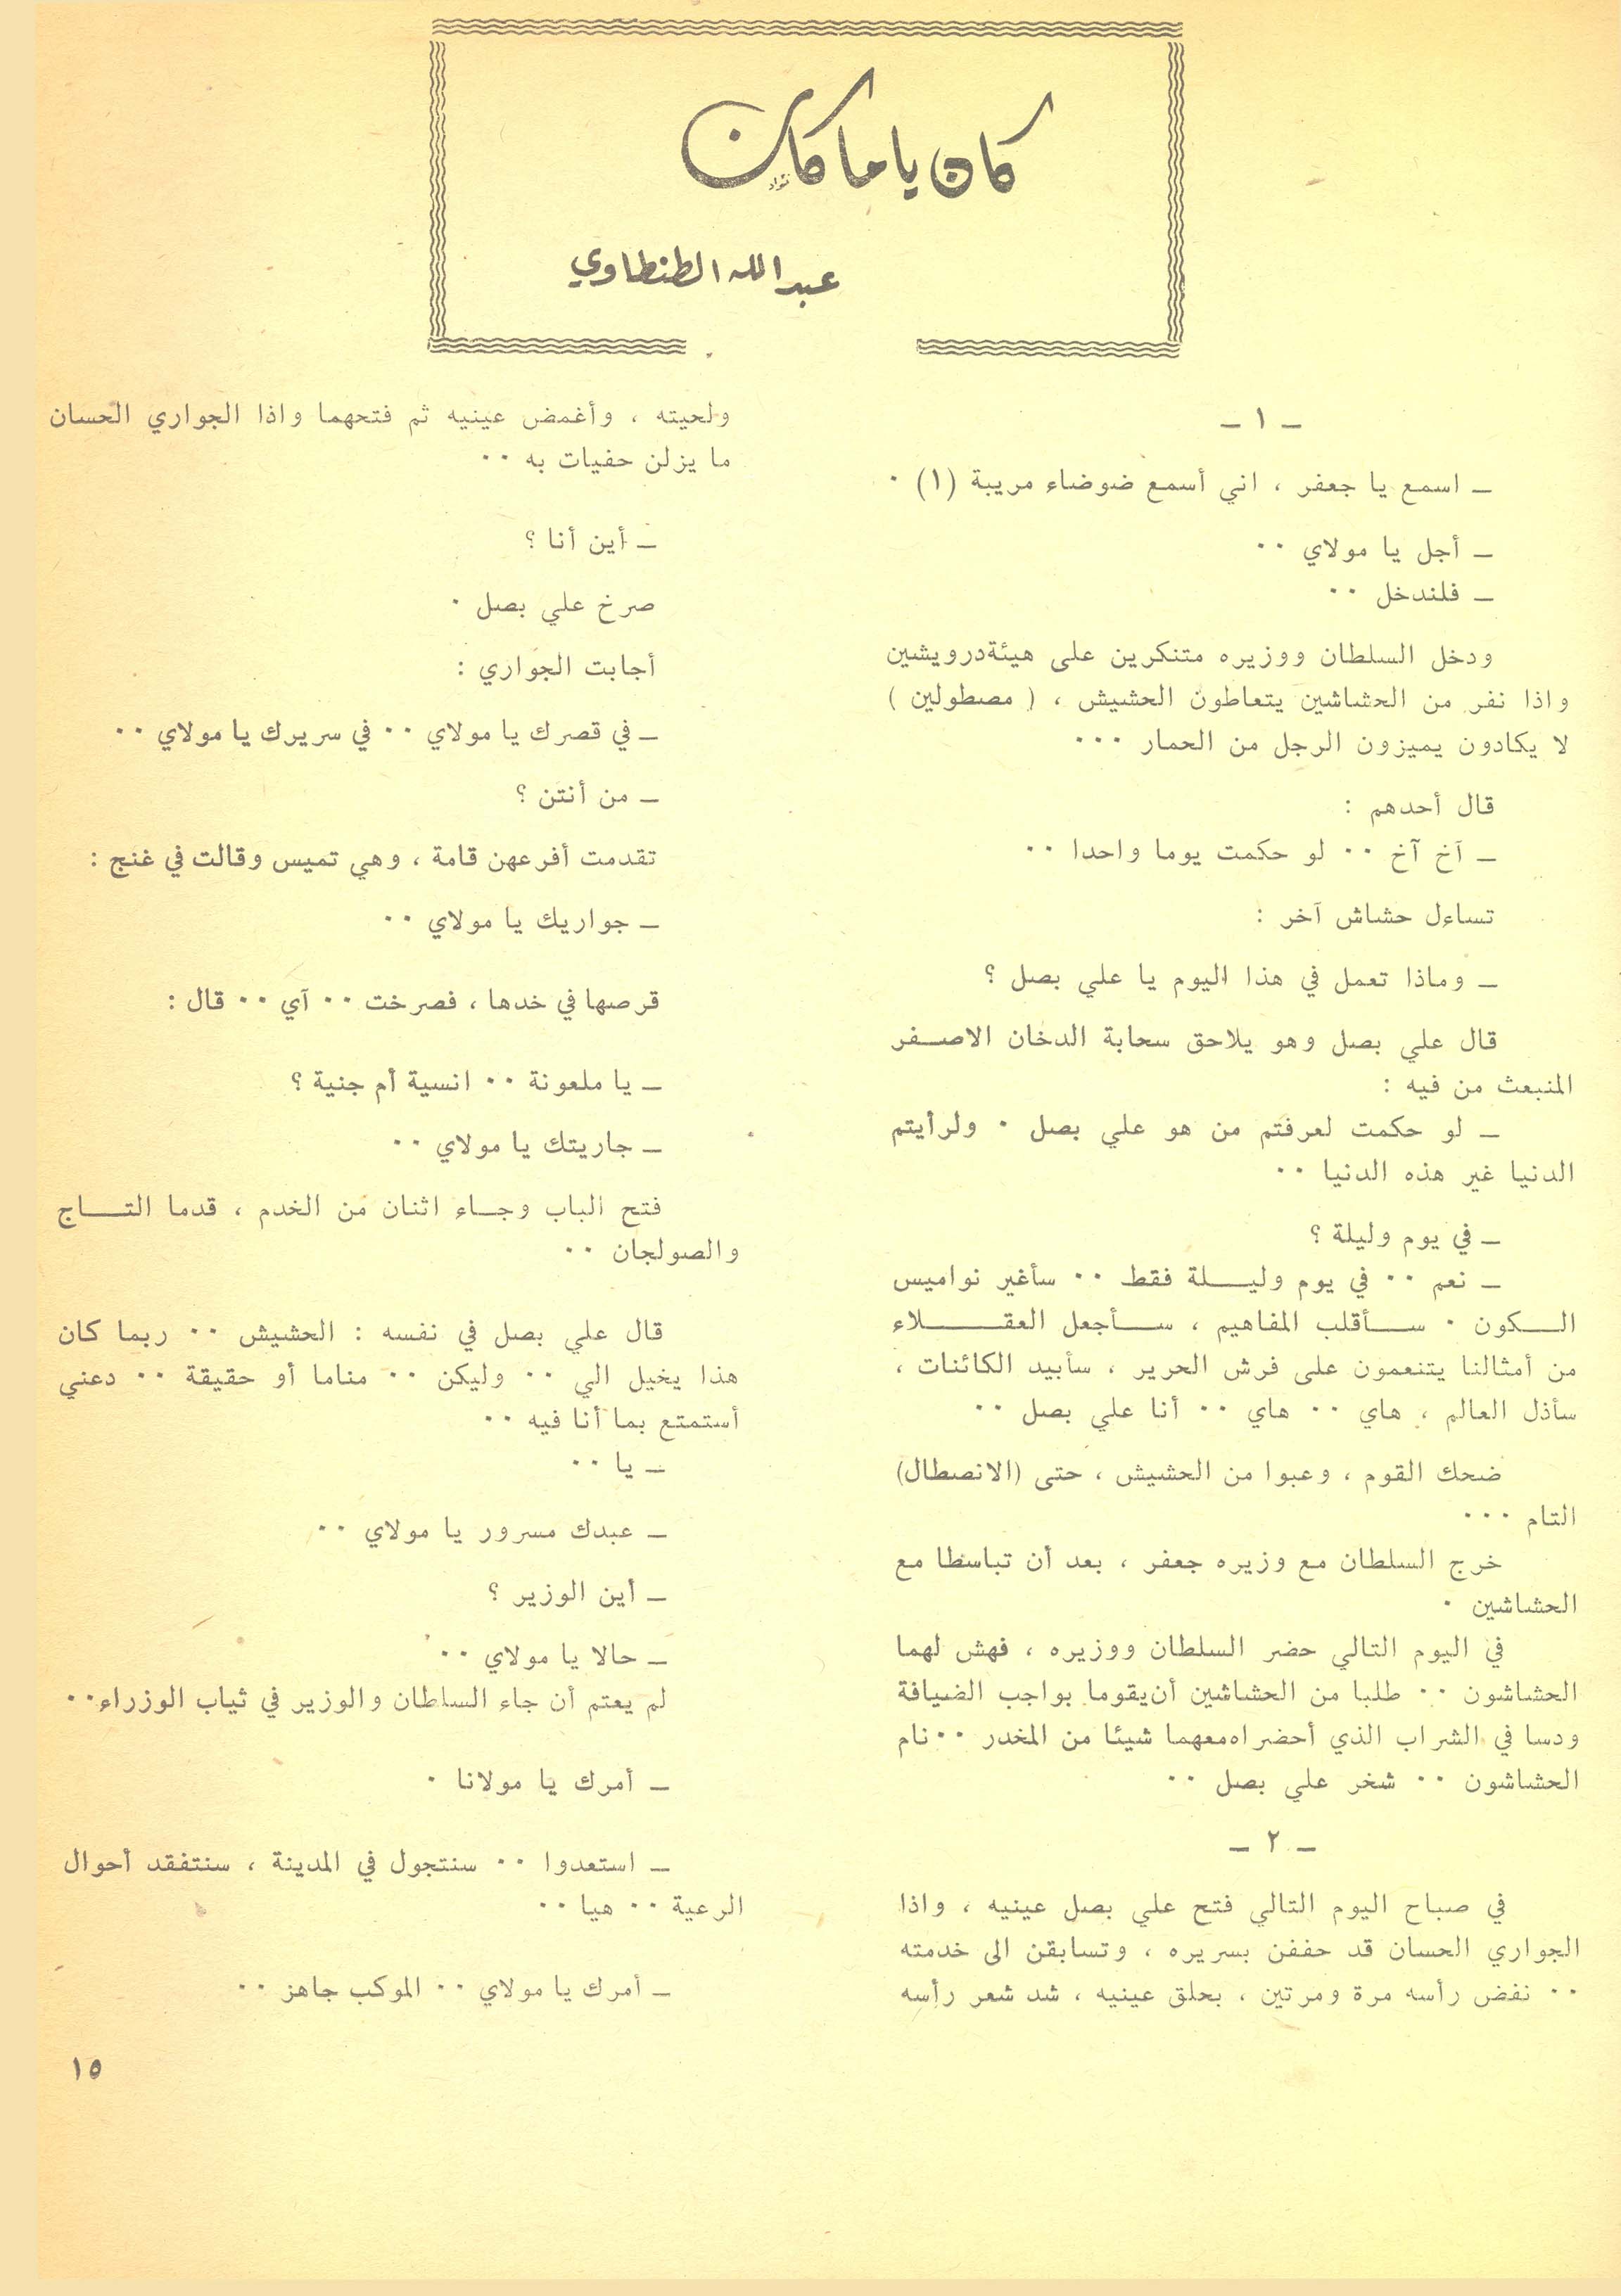 كان ياما كان
عبد الله الطنطاوي
ـ ١ ـ
ـ اسمع يا جعفر ، اني أسمع ضوضاء مريبة (١) ٠
ـ أجل يا مولاي ٠٠
ـ فلندخل ٠٠
ودخل السلطان ووزيره متنكرين على هيئةدرويشين
واذا نفر من الحشاشين يتعاطون الحشيش ، ( مصطولين )
لا يكادون يميزون الرجل من الحمار ٠٠٠
قال أحدهم :
ـ آخ آخ ٠٠ لو حكمت يوما واحدا ٠٠
تساءل حشاش آخر :
ـ وماذا تعمل في هذا اليوم يا علي بصل ؟
قال علي بصل وهو يلاحق سحابة الدخان الاصفر
المنبعث من فيه :
ـ لو حكمت لعرفتم من هو علي بصل ٠ ولرأيتم
الدنيا غير هذه الدنيا ٠٠
ـ في يوم وليلة ؟
ـ نعم ٠٠ في يوم وليلة فقط ٠٠ سأغير نواميس
الكون ٠ سأقلب المفاهيم ، سأجعل العقلاء
من أمثالنا يتنعمون على فرش الحرير ، سأبيد الكائنات ،
سأذل العالم ، هاي ٠٠ هاي ٠٠ أنا علي بصل ٠٠
ضحك القوم ، وعبوا من الحشيش ، حتى (الانصطال)
التام ٠٠٠
خرج السلطان مع وزيره جعفر ، بعد أن تباسطا مع
الحشاشين ٠
في اليوم التالي حضر السلطان ووزيره ، فهش لهما
الحشاشون ٠٠ طلبا من الحشاشين أن يقوما بواجب الضيافة
ودسا في الشراب الذي أحضراه معهما شيئا من المخدر ٠٠ نام
الحشاشون ٠٠ شخر علي بصل ٠٠
ـ ٢ ـ
في صباح اليوم التالي فتح علي بصل عينيه ، واذا
الجواري الحسان قد حففن بسريره ، وتسابقن الى خدمته
٠٠ نفض رأسه مرة ومرتين ، بحلق عينيه ، شد شعر رأسه
ولحيته ، وأغمض عينيه ثم فتحهما واذا الجواري الحسان
ما يزلن حفيات به ٠٠
ـ أين أنا ؟
صرخ علي بصل ٠
أجابت الجواري :
ـ في قصرك يا مولاي ٠٠ في سريرك يا مولاي ٠٠
ـ من أنتن ؟
تقدمت أفرعهن قامة ، وهي تميس وقالت في غنج :
ـ جواريك يا مولاي ٠٠
قرصها في خدها ، فصرخت ٠٠ آي ٠٠ قال :
ـ يا ملعونة ٠٠ انسية أم جنية ؟
ـ جاريتك يا مولاي ٠٠
فتح الباب وجاء اثنان من الخدم ، قدما التاج
والصولجان ٠٠
قال علي بصل في نفسه : الحشيش ٠٠ ربما كان
هذا يخيل الي ٠٠ وليكن ٠٠ مناما أو حقيقة ٠٠ دعني
أستمتع بما أنا فيه ٠٠
ـ يا ٠٠
ـ عبدك مسرور يا مولاي ٠٠
ـ أين الوزير ؟
ـ حالا يا مولاي ٠٠
لم يعتم أن جاء السلطان والوزير في ثياب الوزراء ٠٠
ـ أمرك يا مولانا ٠
ـ استعدوا ٠٠ سنتجول في المدينة ، سنتفقد أحوال
الرعية ٠٠ هيا ٠٠
ـ أمرك يا مولاي ٠٠ الموكب جاهز ٠٠
١٥